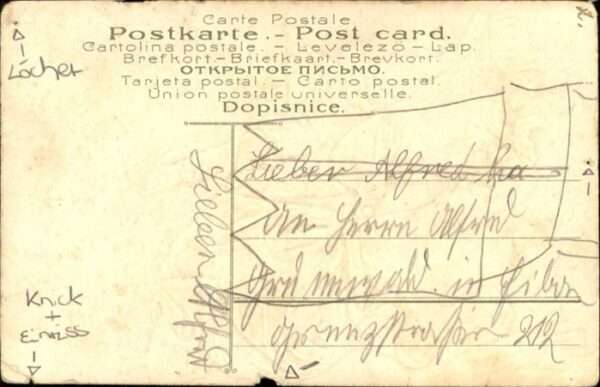 Carte Postale.
Postkarte. - Post card.
Cartolina postale. - Levelezö - Lap.
Brefkort. - Briefkaart. - Brevkort.
ОТКРЫТОЕ ПИСЬМО.
Tarjeta postal. - Carto postal.
Union postale universelle.
Dopisnice.
Löcher
2.
Lieber Alfred
An Herrn Alfred
Grünewald in
212
Lieber Alfred
Knick
+
Einriss